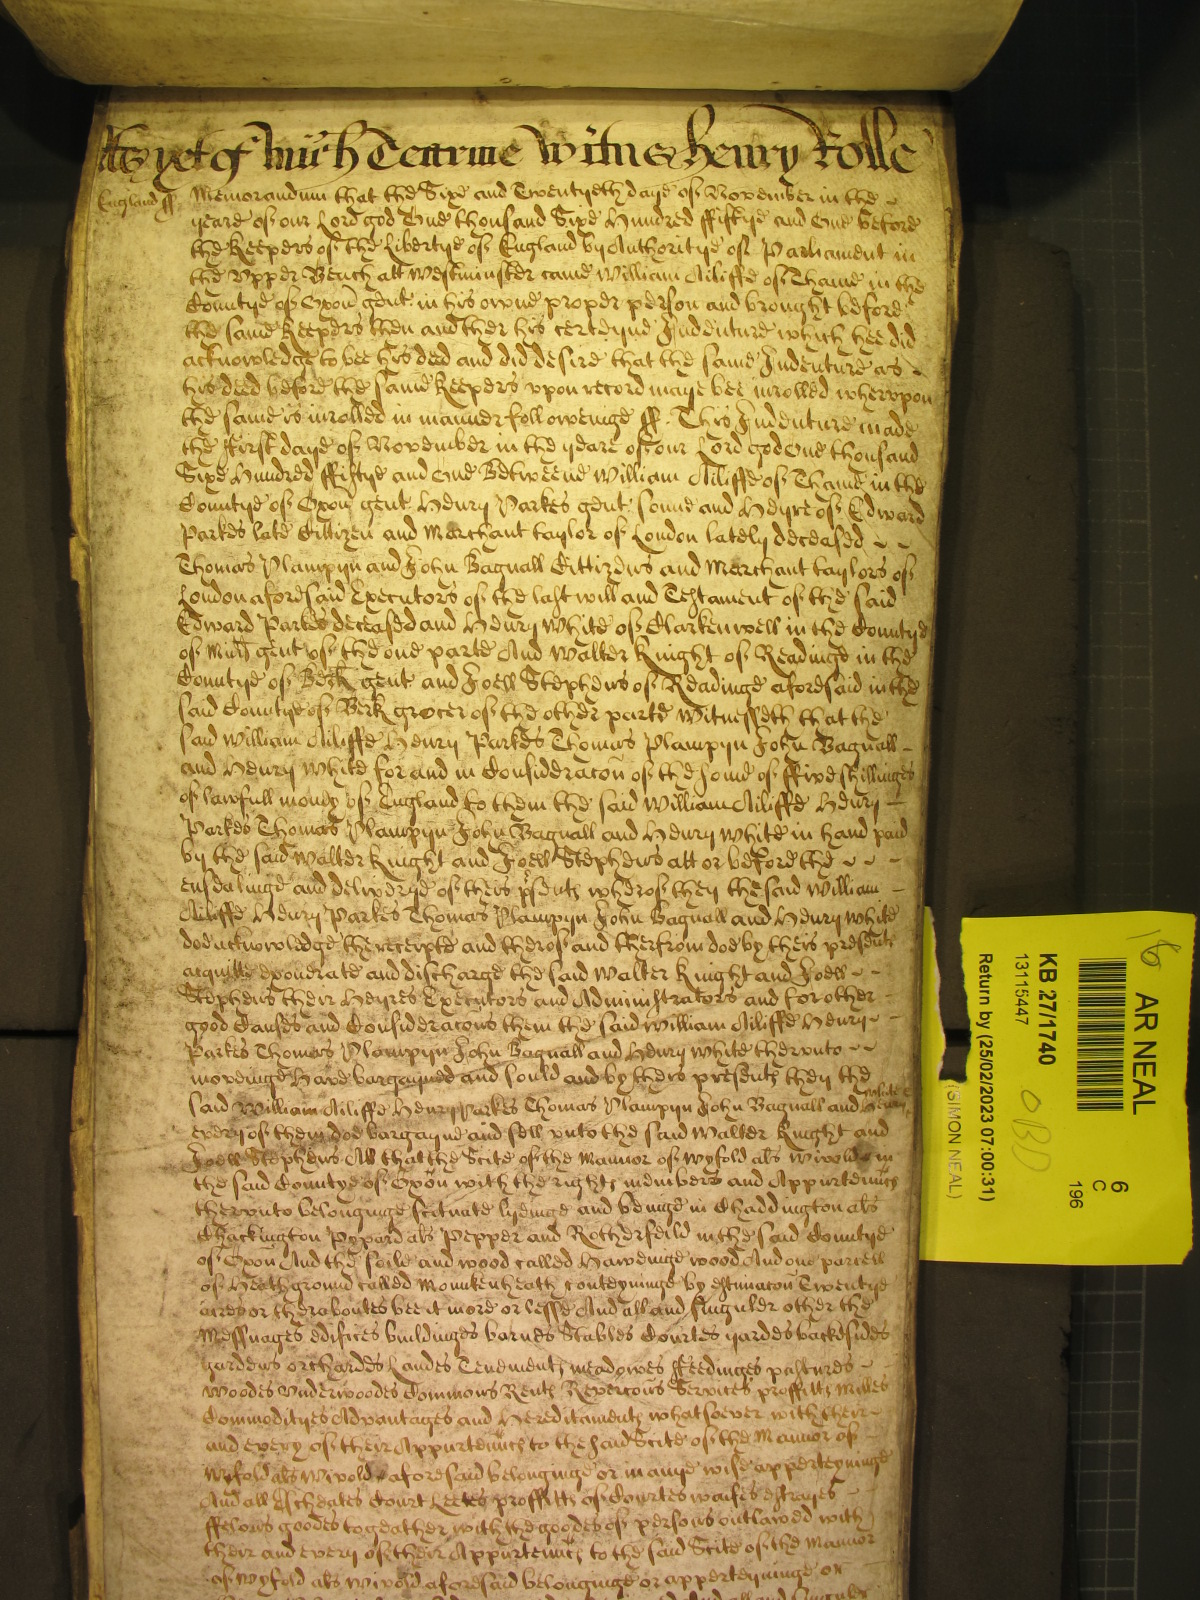 As yet of Mich Tearme Witnes Henry Rolle
England ss. Memorandum that the Sixe and Twentyeth daye of November in the
yeare of our Lord god One thousand Sixe Hundred ffiftye and One before
the Keepers of the Libertye of England by Authoritye of Parliament in
the Vpper Bench att Westminster came William Ailiffe of Thame in the
Countye of Oxon gent in his owne proper person and brought before
the same Keepers then and ther his certeyne Indenture which hee did
acknowledge to bee his deed and did desire that the same Indenture as
his deed before the same Keepers vpon record maye bee inrolled whervpon
the same is inrolled in manner followeinge ss. This Indenture made
the ffirst daye of November in the yeare of our Lord god One thousand
Sixe Hundred ffiftye and One Betweene William Ailiffe of Thame in the
Countye of Oxon gent Henry Parkes gent sonne and Heyre of Edward
Parkes late Cittizen and Merchant taylor of London lately deceased
Thomas Plampyn and John Bagnall Cittizens and Merchant taylors of
London aforesaid Executors of the last will and Testament of the said
Edward Parkes deceased and Henry White of Clarkenwell in the Countye
of Midd gent of the one parte And Walter Knight of Readinge in the
Countye of Berk gent and Joell Stephens of Readinge aforesaid in the
said Countye of Berk grocer of the other parte Witnesseth that the
said William Ailiffe Henry Parkes Thomas Plampyn John Bagnall
and Henry White for and in Consideracon of the some of ffive shillinges
of lawfull money of England to them the said William Ailiffe Henry
Parkes Thomas Plampyn John Bagnall and Henry White in hand paid
by the said Walter Knight and Joell Stephens att or before the
ensealinge and deliverye of theis psents wherof they the said William
Ailiffe Henry Parkes Thomas Plampyn John Bagnall and Henry White
doe acknowledge the receipte and therof and therfrom doe by theis presents
acquitte exonerate and discharge the said Walter Knight and Joell
Stephens their Heyres Executors and Administrators and for other
good Causes and Consideracons them the said William Ailiffe Henry
Parkes Thomas Plampyn John Bagnall and Henry White thervnto
moveinge Have bargayned and sould and by theis presents they the
said William Ailiffe Henry Parkes Thomas Plampyn John Bagnall and Henry White
every of them doe bargayne and sell vnto the said Walter Knight and
Joell Stephens All that the Scite of the Mannor of Wyfold als Wivold in
the said Countye of Oxon with the rights members and Appurtenncs
thervnto belonginge scituate lyeinge and beinge in Chaddington als
Chackington Pypard als Pepper and Rotherfeild in the said Countye
of Oxon And the soile and wood called Haweinge wood And one parcell
of Heath ground called Monken heath conteyninge by estimacon Twentye
acres or theraboutes bee it more or lesse And all and singuler other the
Messuages edifices buildinges barnes Stables Courtes yardes backesides
gardens orchardes Landes Tenements meadowes ffeedinges pastures
Woodes Vnderwoodes Commons Rents Revercons Services proffitts Milles
Commodityes Advantages and Hereditaments whatsoever with their
and every of their Appurtenncs to the said Scite of the Mannor of
Wyfold als Wivold aforesaid belonginge or in anye wise apperteyninge
And all Escheates Court Leetes proffitts of Courtes waifes estrayes
ffelons goodes togeather with the goodes of persons outlawed with
their and every of their Appurtenncs to the said Scite of the Mannor
of Wyfold als Wivold aforesaid belonginge or apperteyninge or
AR NEAL
6
C
196
KB 27/1740
13115447
Return by (25/02/2023 07:00:31)
(SIMON NEAL)
16